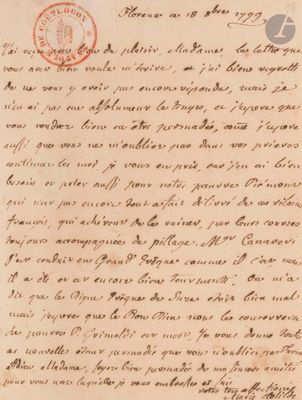 Florence ce 18 8bre 1799
J'ai reçu avec bien du plaisir, Madame, la lettre que
vous avez bien voulu m'écrire, et j'ai bien regretté
de ne vous y avoir pas encore répondu, mais je
n'en ai pas eu absolument le temps, et j'espere que
vous voudrez bien en être persuadée, comme j'espere
aussi que vous ne m'oubliez pas dans vos prieres
continuez les moi je vous en prie, car j'en ai bien
besoin et priez aussi pour notre pauvre Piémont
qui n'est pas encore tout a fait delivré de ces vilains
françois, qui achevent de le ruiner, par leurs courses
toujours accompagnées de pillage. Mgr Canaveri
s'est conduit en Grand Evêque comme il l'est
il a été et est encore bien tourmenté. On m'a
dit que le Digne Evêque de Suze etoit bien mal
mais j'espere que le Bon Dieu nous le conservera
le pauvre P. Grimaldi est mort, je vous donne
cette nouvelle étant persuadée que vous n'oubliez pas
Adieu, Madame, soyez bien persuadée de ma sincere amitié
pour vous avec laquelle je vous embrasse et suis
votre très affectionnée
Marie Clotilde